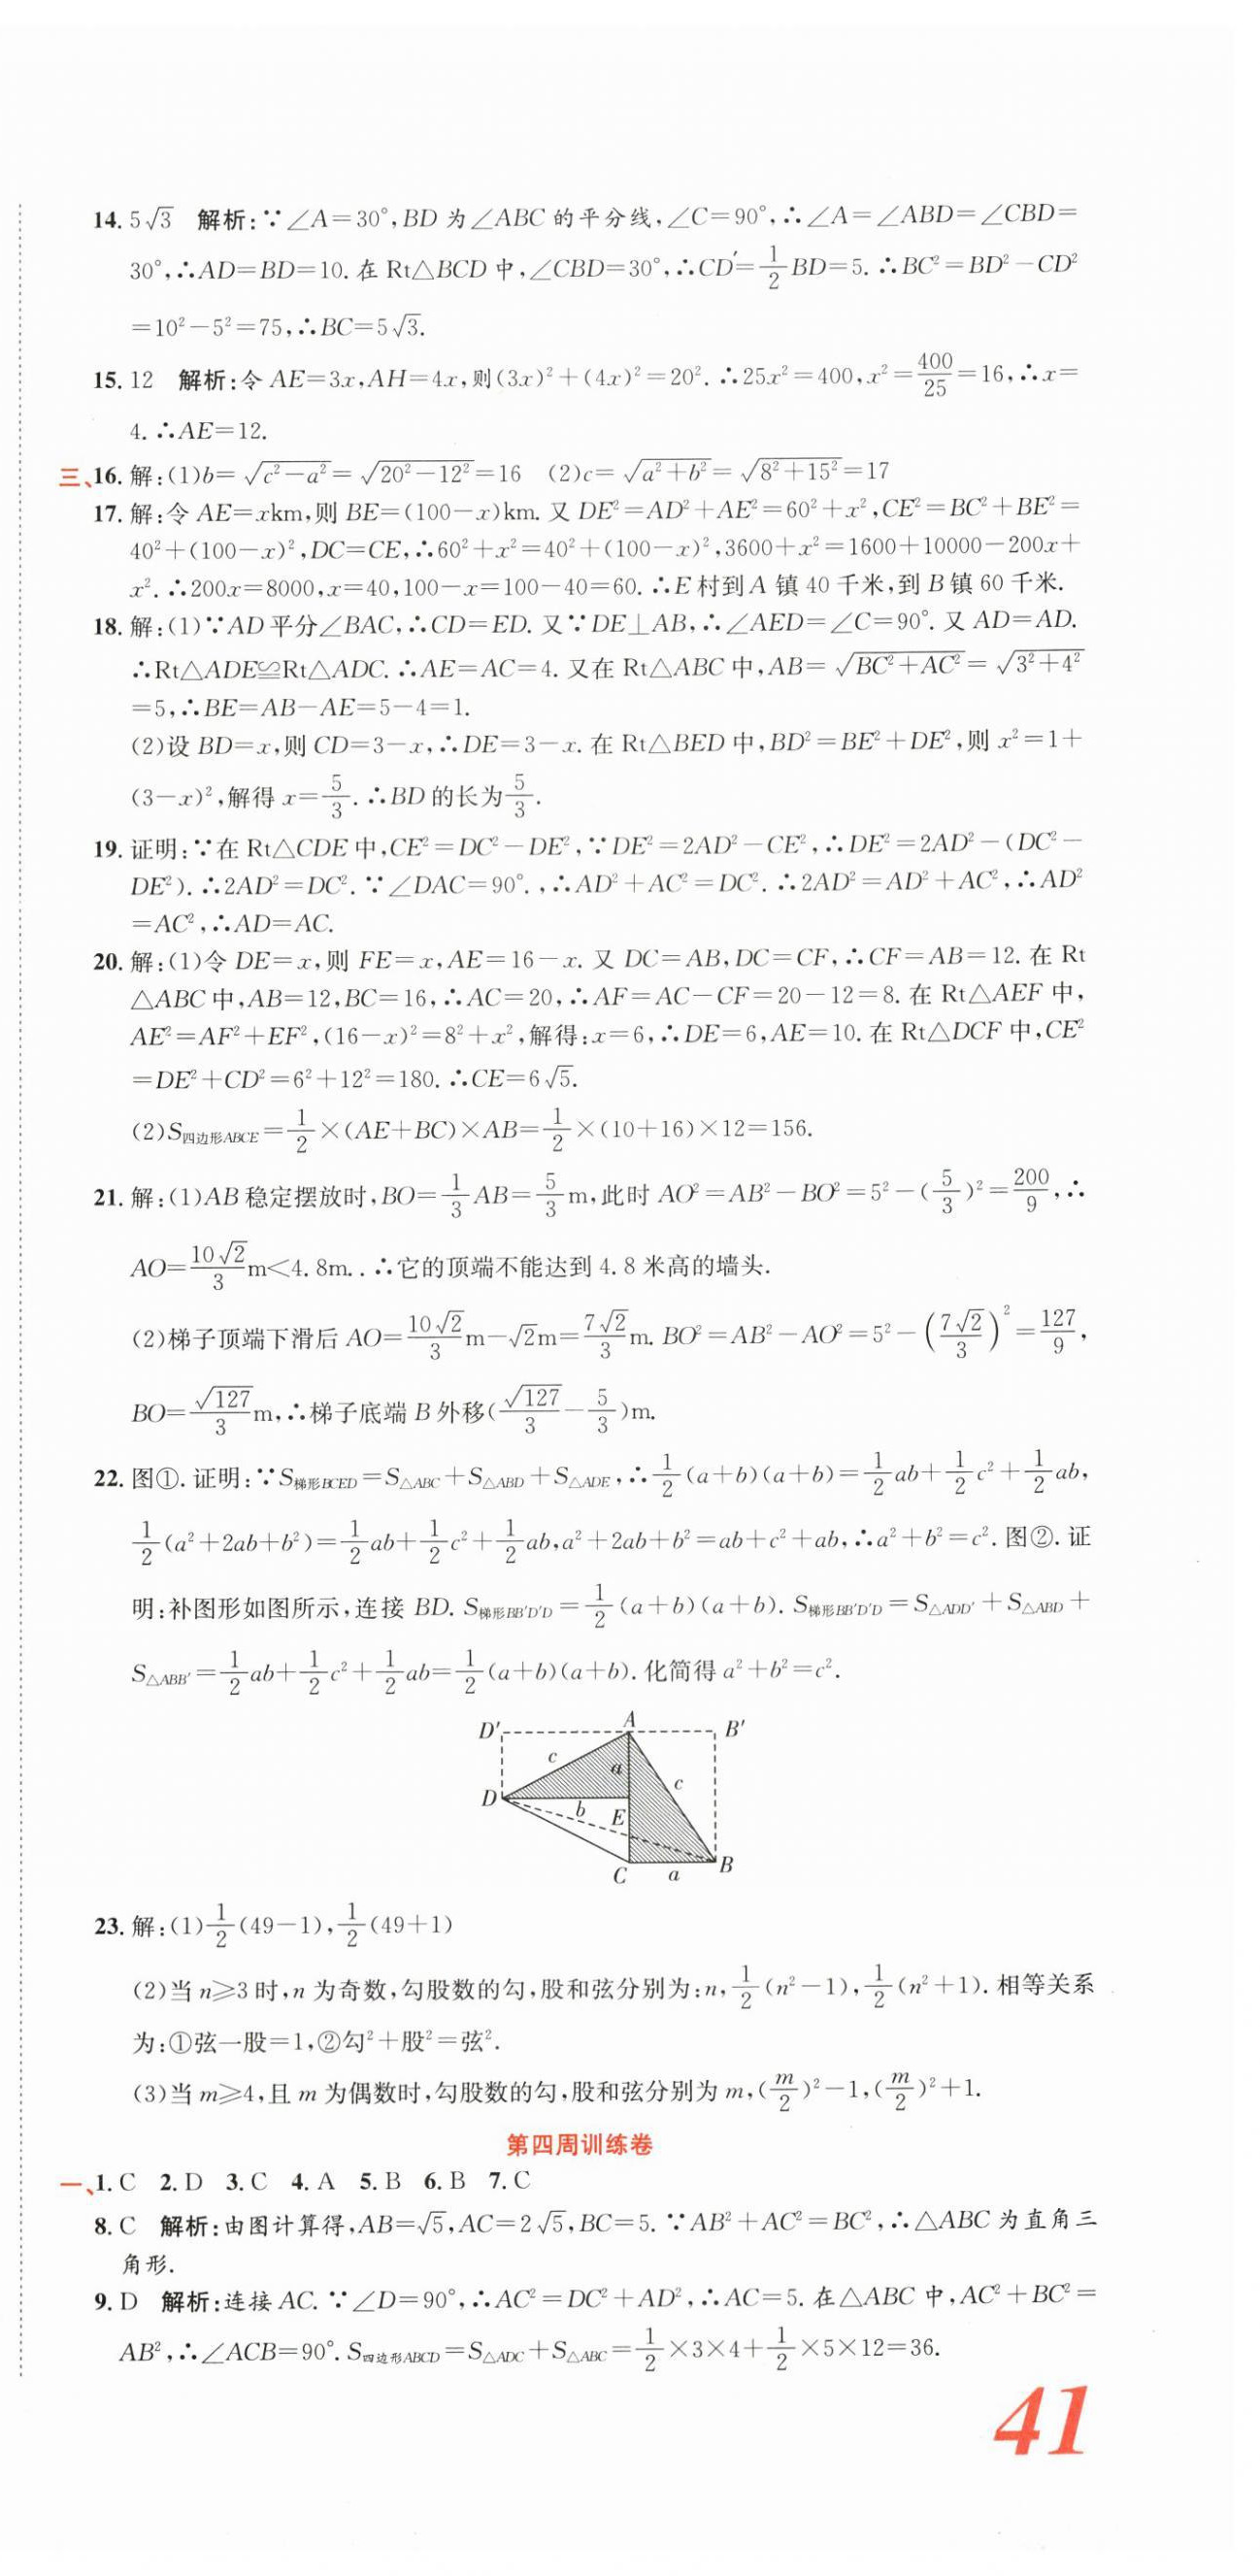 14. 5√3 解析:∵∠A=30°,BD为∠ABC的平分线,∠C=90°,∴∠A=∠ABD=∠CBD=
30°,∴AD=BD=10.在Rt△BCD中,∠CBD=30°,∴CD=1/2BD=5.∴BC²=BD²-CD²
=10²-5²=75,∴BC=5√3.
15. 12 解析:令AE=3x,AH=4x,则(3x)²+(4x)²=20².∴25x²=400,x²=400/25=16,∴x=
4.∴AE=12.
三、16.解:(1)b=√(c²-a²)=√(20²-12²)=16 (2)c=√(a²+b²)=√(8²+15²)=17
17.解:令AE=xkm,则BE=(100-x)km.又DE²=AD²+AE²=60²+x²,CE²=BC²+BE²=
40²+(100-x)²,DC=CE,∴60²+x²=40²+(100-x)²,3600+x²=1600+10000-200x+
x².∴200x=8000,x=40,100-x=100-40=60.∴E村到A镇40千米,到B镇60千米.
18.解:(1)∵AD平分∠BAC,∴CD=ED.又∵DE⊥AB,∴∠AED=∠C=90°.又AD=AD.
∴Rt△ADE≌Rt△ADC.∴AE=AC=4.又在Rt△ABC中,AB=√(BC²+AC²)=√(3²+4²)
=5,∴BE=AB-AE=5-4=1.
(2)设BD=x,则CD=3-x,∴DE=3-x.在Rt△BED中,BD²=BE²+DE²,则x²=1+
(3-x)²,解得x=5/3.∴BD的长为5/3.
19.证明:∵在Rt△CDE中,CE²=DC²-DE²,∵DE²=2AD²-CE²,∴DE²=2AD²-(DC²-
DE²).∴2AD²=DC².∵∠DAC=90°.,∴AD²+AC²=DC².∴2AD²=AD²+AC²,∴AD²
=AC²,∴AD=AC.
20.解:(1)令DE=x,则FE=x,AE=16-x.又DC=AB,DC=CF,∴CF=AB=12.在Rt
△ABC中,AB=12,BC=16,∴AC=20,∴AF=AC-CF=20-12=8.在Rt△AEF中,
AE²=AF²+EF²,(16-x)²=8²+x²,解得:x=6,∴DE=6,AE=10.在Rt△DCF中,CE²
=DE²+CD²=6²+12²=180.∴CE=6√5.
(2)S四边形ABCE=1/2×(AE+BC)×AB=1/2×(10+16)×12=156.
21.解:(1)AB稳定摆放时,BO=1/3AB=5/3m,此时AO²=AB²-BO²=5²-(5/3)²=200/9,∴
AO=10√2/3m<4.8m..∴它的顶端不能达到4.8米高的墙头.
(2)梯子顶端下滑后AO=10√2/3m-√2m=7√2/3m.BO²=AB²-AO²=5²-(7√2/3)²=127/9,
BO=√127/3m,∴梯子底端B外移(√127/3-5/3)m.
22.图①.证明:∵S梯形BCED=S△ABC+S△ABD+S△ADE,∴1/2(a+b)(a+b)=1/2ab+1/2c²+1/2ab,
1/2(a²+2ab+b²)=1/2ab+1/2c²+1/2ab,a²+2ab+b²=ab+c²+ab,∴a²+b²=c².图②.证
明:补图形如图所示,连接BD.S梯形BB'D'D=1/2(a+b)(a+b).S梯形BB'D'D=S△ADD'+S△ABD+
S△ABB'=1/2ab+1/2c²+1/2ab=1/2(a+b)(a+b).化简得a²+b²=c².
D' A B'
c a c
D b E
C a B
23.解:(1)1/2(49-1),1/2(49+1)
(2)当n≥3时,n为奇数,勾股数的勾,股和弦分别为:n,1/2(n²-1),1/2(n²+1).相等关系
为:①弦一股=1,②勾²+股²=弦².
(3)当m≥4,且m为偶数时,勾股数的勾,股和弦分别为m,(m/2)²-1,(m/2)²+1.
第四周训练卷
一、1.C 2.D 3.C 4.A 5.B 6.B 7.C
8.C 解析:由图计算得,AB=√5,AC=2√5,BC=5.∵AB²+AC²=BC²,∴△ABC为直角三
角形.
9.D 解析:连接AC.∵∠D=90°,∴AC²=DC²+AD²,∴AC=5.在△ABC中,AC²+BC²=
AB²,∴∠ACB=90°.S四边形ABCD=S△ADC+S△ABC=1/2×3×4+1/2×5×12=36.
41